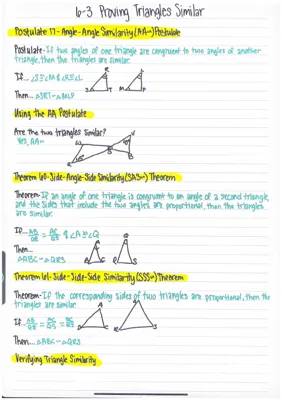 6-3 Proving Triangles Similar
Postulate 17 - Angle-Angle Similarity (AA~) Postulate
Postulate - If two angles of one triangle are congruent to two angles of another
triangle, then the triangles are similar.
If... ∠S ≅ ∠M & ∠R ≅ ∠L
Then... △SRT ~ △MLP
Using the AA Postulate
Are the two triangles similar?
Yes, AA~
Theorem -Side-Angle-Side Similarity (SAS~) Theorem
Theorem - If an angle of one triangle is congruent to an angle of a second triangle,
and the sides that include the two angles are proportional, then the triangles
are similar.
If... AB/QR = AC/QS & ∠A ≅ ∠Q
Then...
△ABC ~ △QRS
Theorem -Side-Side-Side Similarity (SSS~) Theorem
Theorem - If the corresponding sides of two triangles are proportional, then the
triangles are similar.
If... AB/QR = AC/QS = BC/RS
Then... △ABC ~ △QRS
Verifying Triangle Similarity